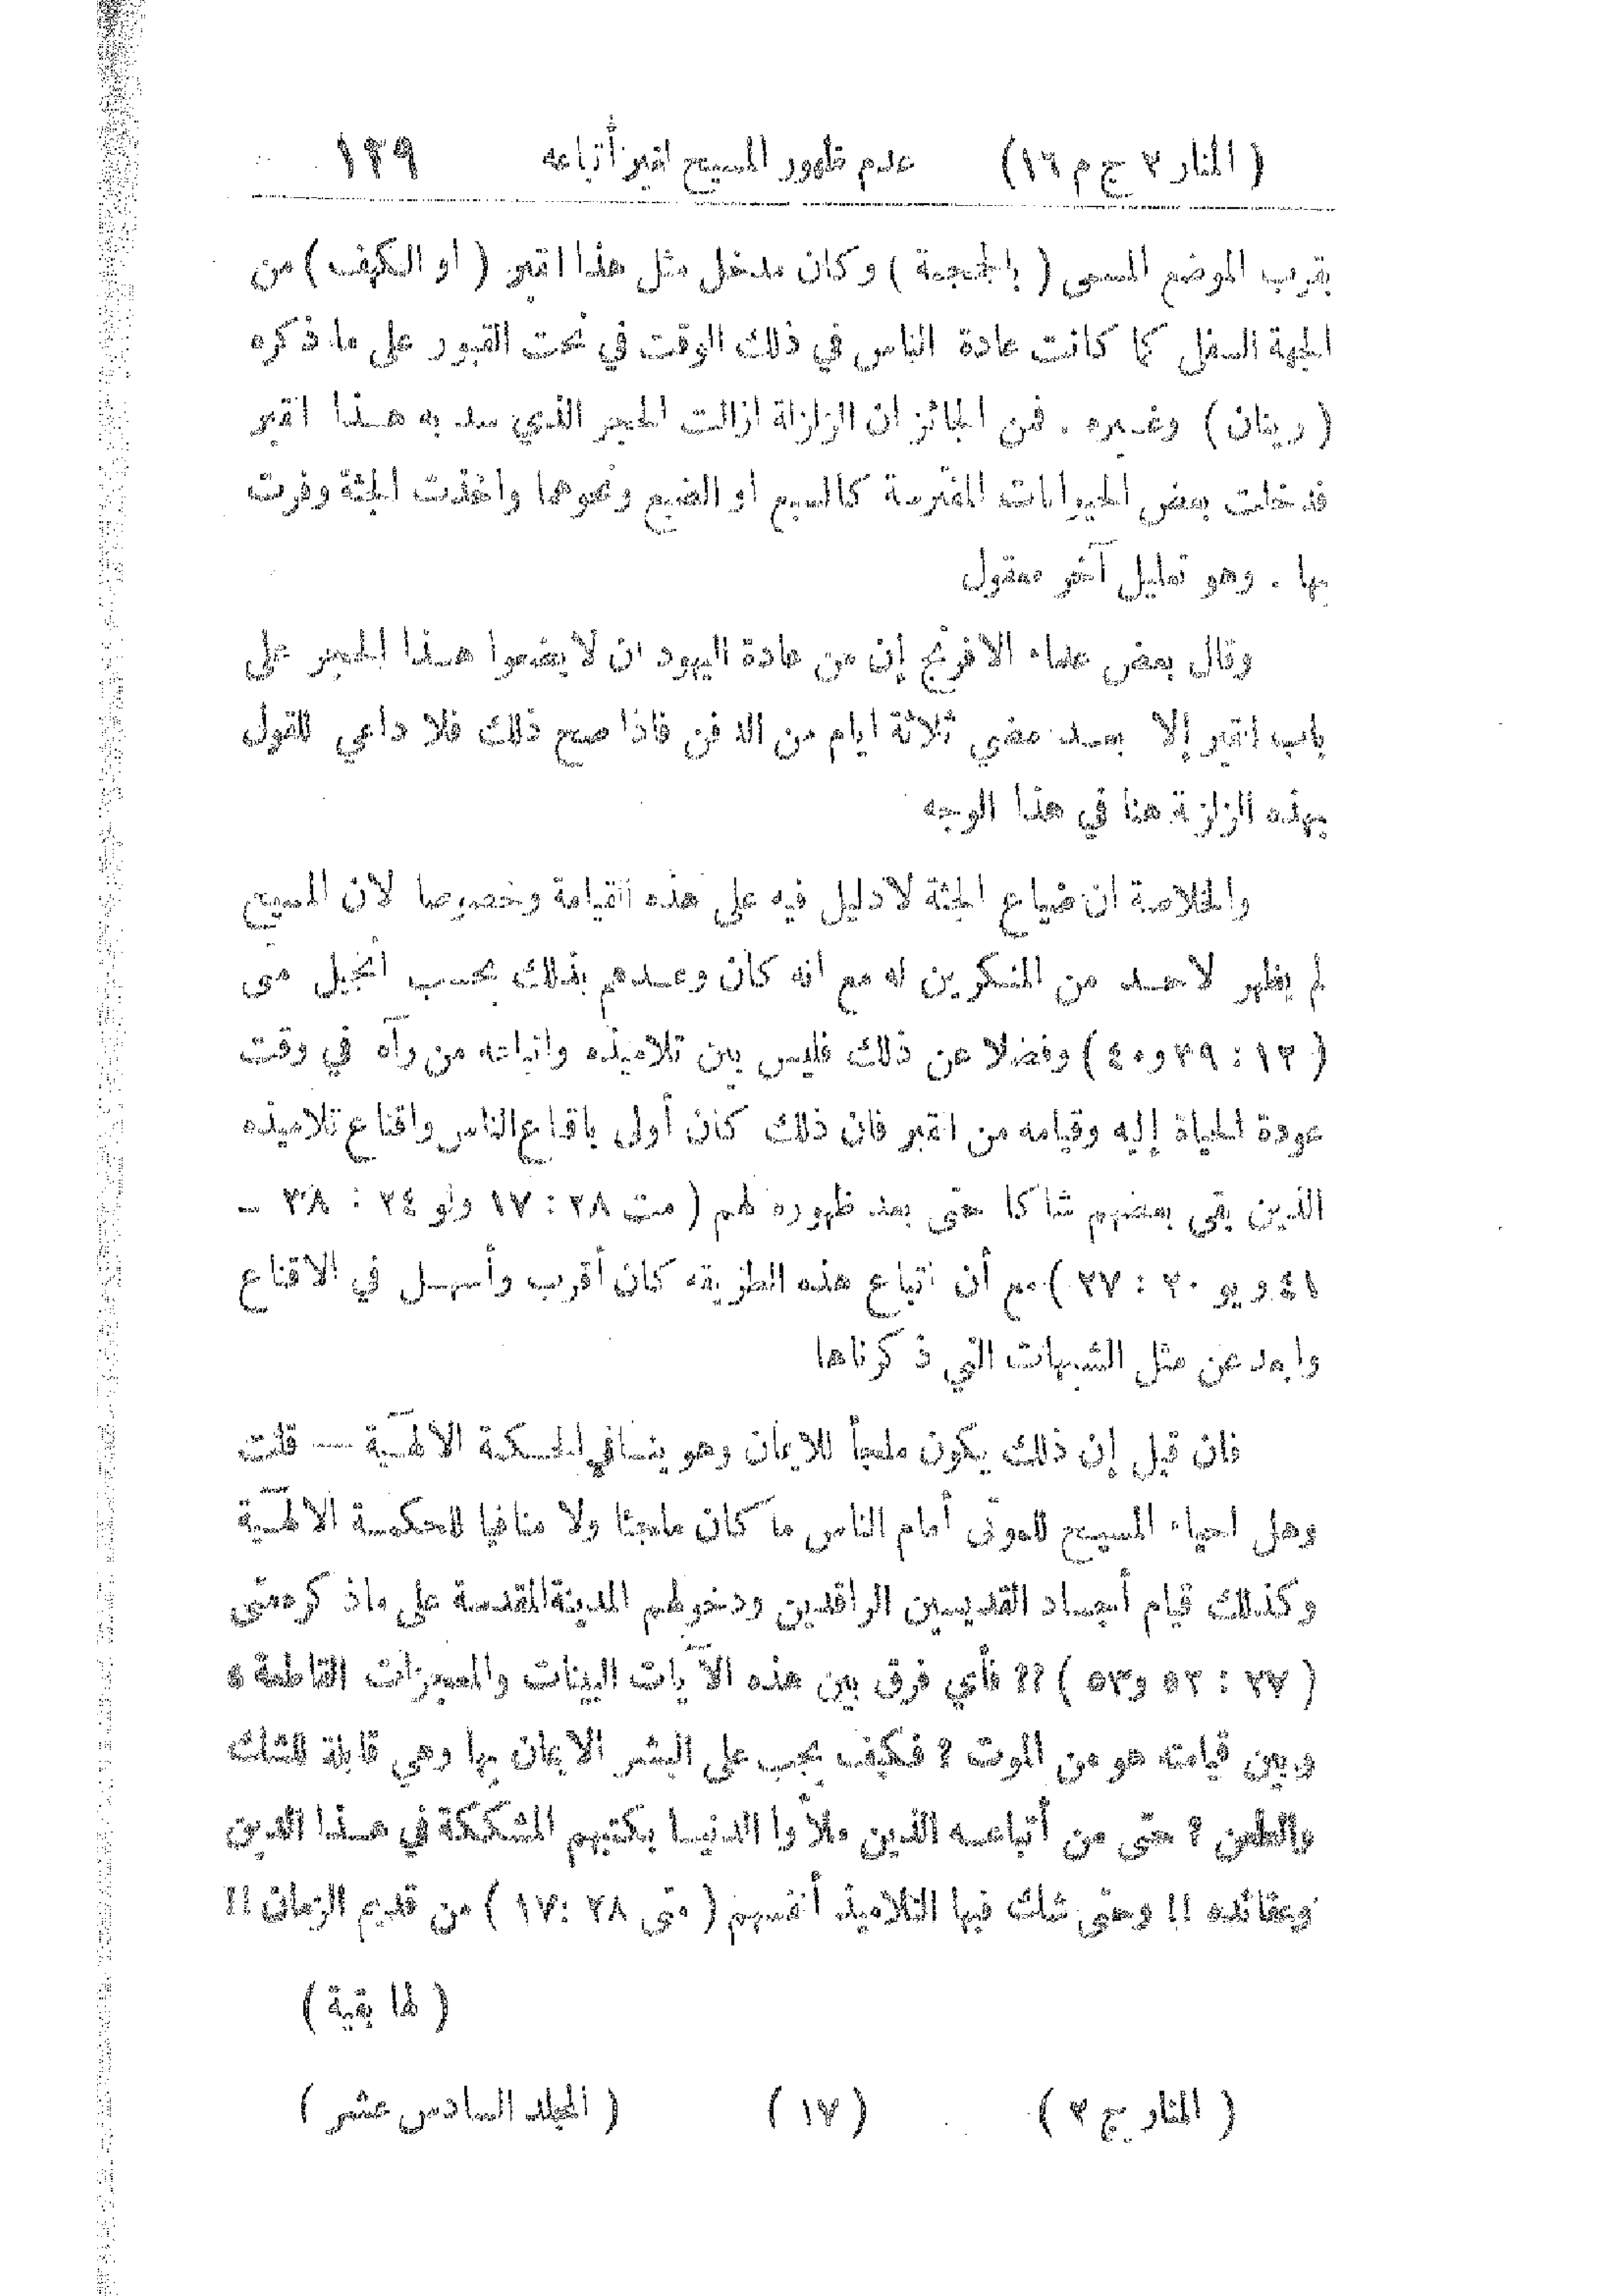 ( المنار ٢ ج م ١٦) عدم ظهور المسيح لغير أتباعه ١٢٩
بقرب الموضع المسمى ( بالجمجمة ) وكان مدخل مثل هذا القبر ( او الكهف ) من
الجهة السفلى كما كانت عادة الناس في ذلك الوقت في نحت القبور على ما ذكره
( رينان ) وغيره . فمن الجائز ان الزلزلة ازالت الحجر الذي سد به هذا القبر
فدخلت بعض الحيوانات المفترسة كالسبع او الضبع ونحوها واخذت الجثة وفرت
بها . وهو تعليل آخر معقول
وقال بعض علماء الافرنج إن من عادة اليهود ان لا يضعوا هذا الحجر على
باب القبر إلا بعد مضي ثلاثة ايام من الدفن فاذا صح ذلك فلا داعي للقول
بهذه الزلزلة هنا في هذا الوجه
والخلاصة ان ضياع الجثة لا دليل فيه على هذه القيامة وخصوصا لان المسيح
لم يظهر لاحد من المنكرين له مع انه كان وعدهم بذلك بحسب انجيل متى
( ١٢ : ٣٩ و٤٠ ) وفضلا عن ذلك فليس بين تلاميذه واتباعه من رآه في وقت
عودة الحياة إليه وقيامه من القبر فان ذلك كان أولى باقناع الناس واقناع تلاميذه
الذين بقي بعضهم شاكا حتى بعد ظهوره لهم ( مت ٢٨ : ١٧ ولو ٢٤ : ٣٨ ـ
٤١ و يو ٢٠ : ٢٧ ) مع أن اتباع هذه الطريقة كان أقرب وأسهل في الاقناع
وابعد عن مثل الشبهات التي ذكرناها
فان قيل إن ذلك يكون ملجأ للايمان وهو ينافي الحكمة الالهية — قلت
وهل احياء المسيح للموتى أمام الناس ما كان ملجئا ولا منافيا للحكمة الالهية
وكذلك قيام أجساد القديسين الراقدين ودخولهم المدينة المقدسة على ما ذكره متى
( ٢٧ : ٥٢ و٥٣ ) ؟؟ فأي فرق بين هذه الآيات البينات والمعجزات القاطعة ،
وبين قيامته هو من الموت ؟ فكيف يجب على البشر الايمان بها وهي قابلة للشك
والطعن ؟ حتى من أتباعه الذين ملأوا الدنيا بكتبهم المشككة في هذا الدين
وعقائده !! وحتى شك فيها التلاميذ أنفسهم ( متى ٢٨ : ١٧ ) من قديم الزمان !!
( لها بقية )
( المنار ج ٢ ) ( ١٧ ) ( المجلد السادس عشر )